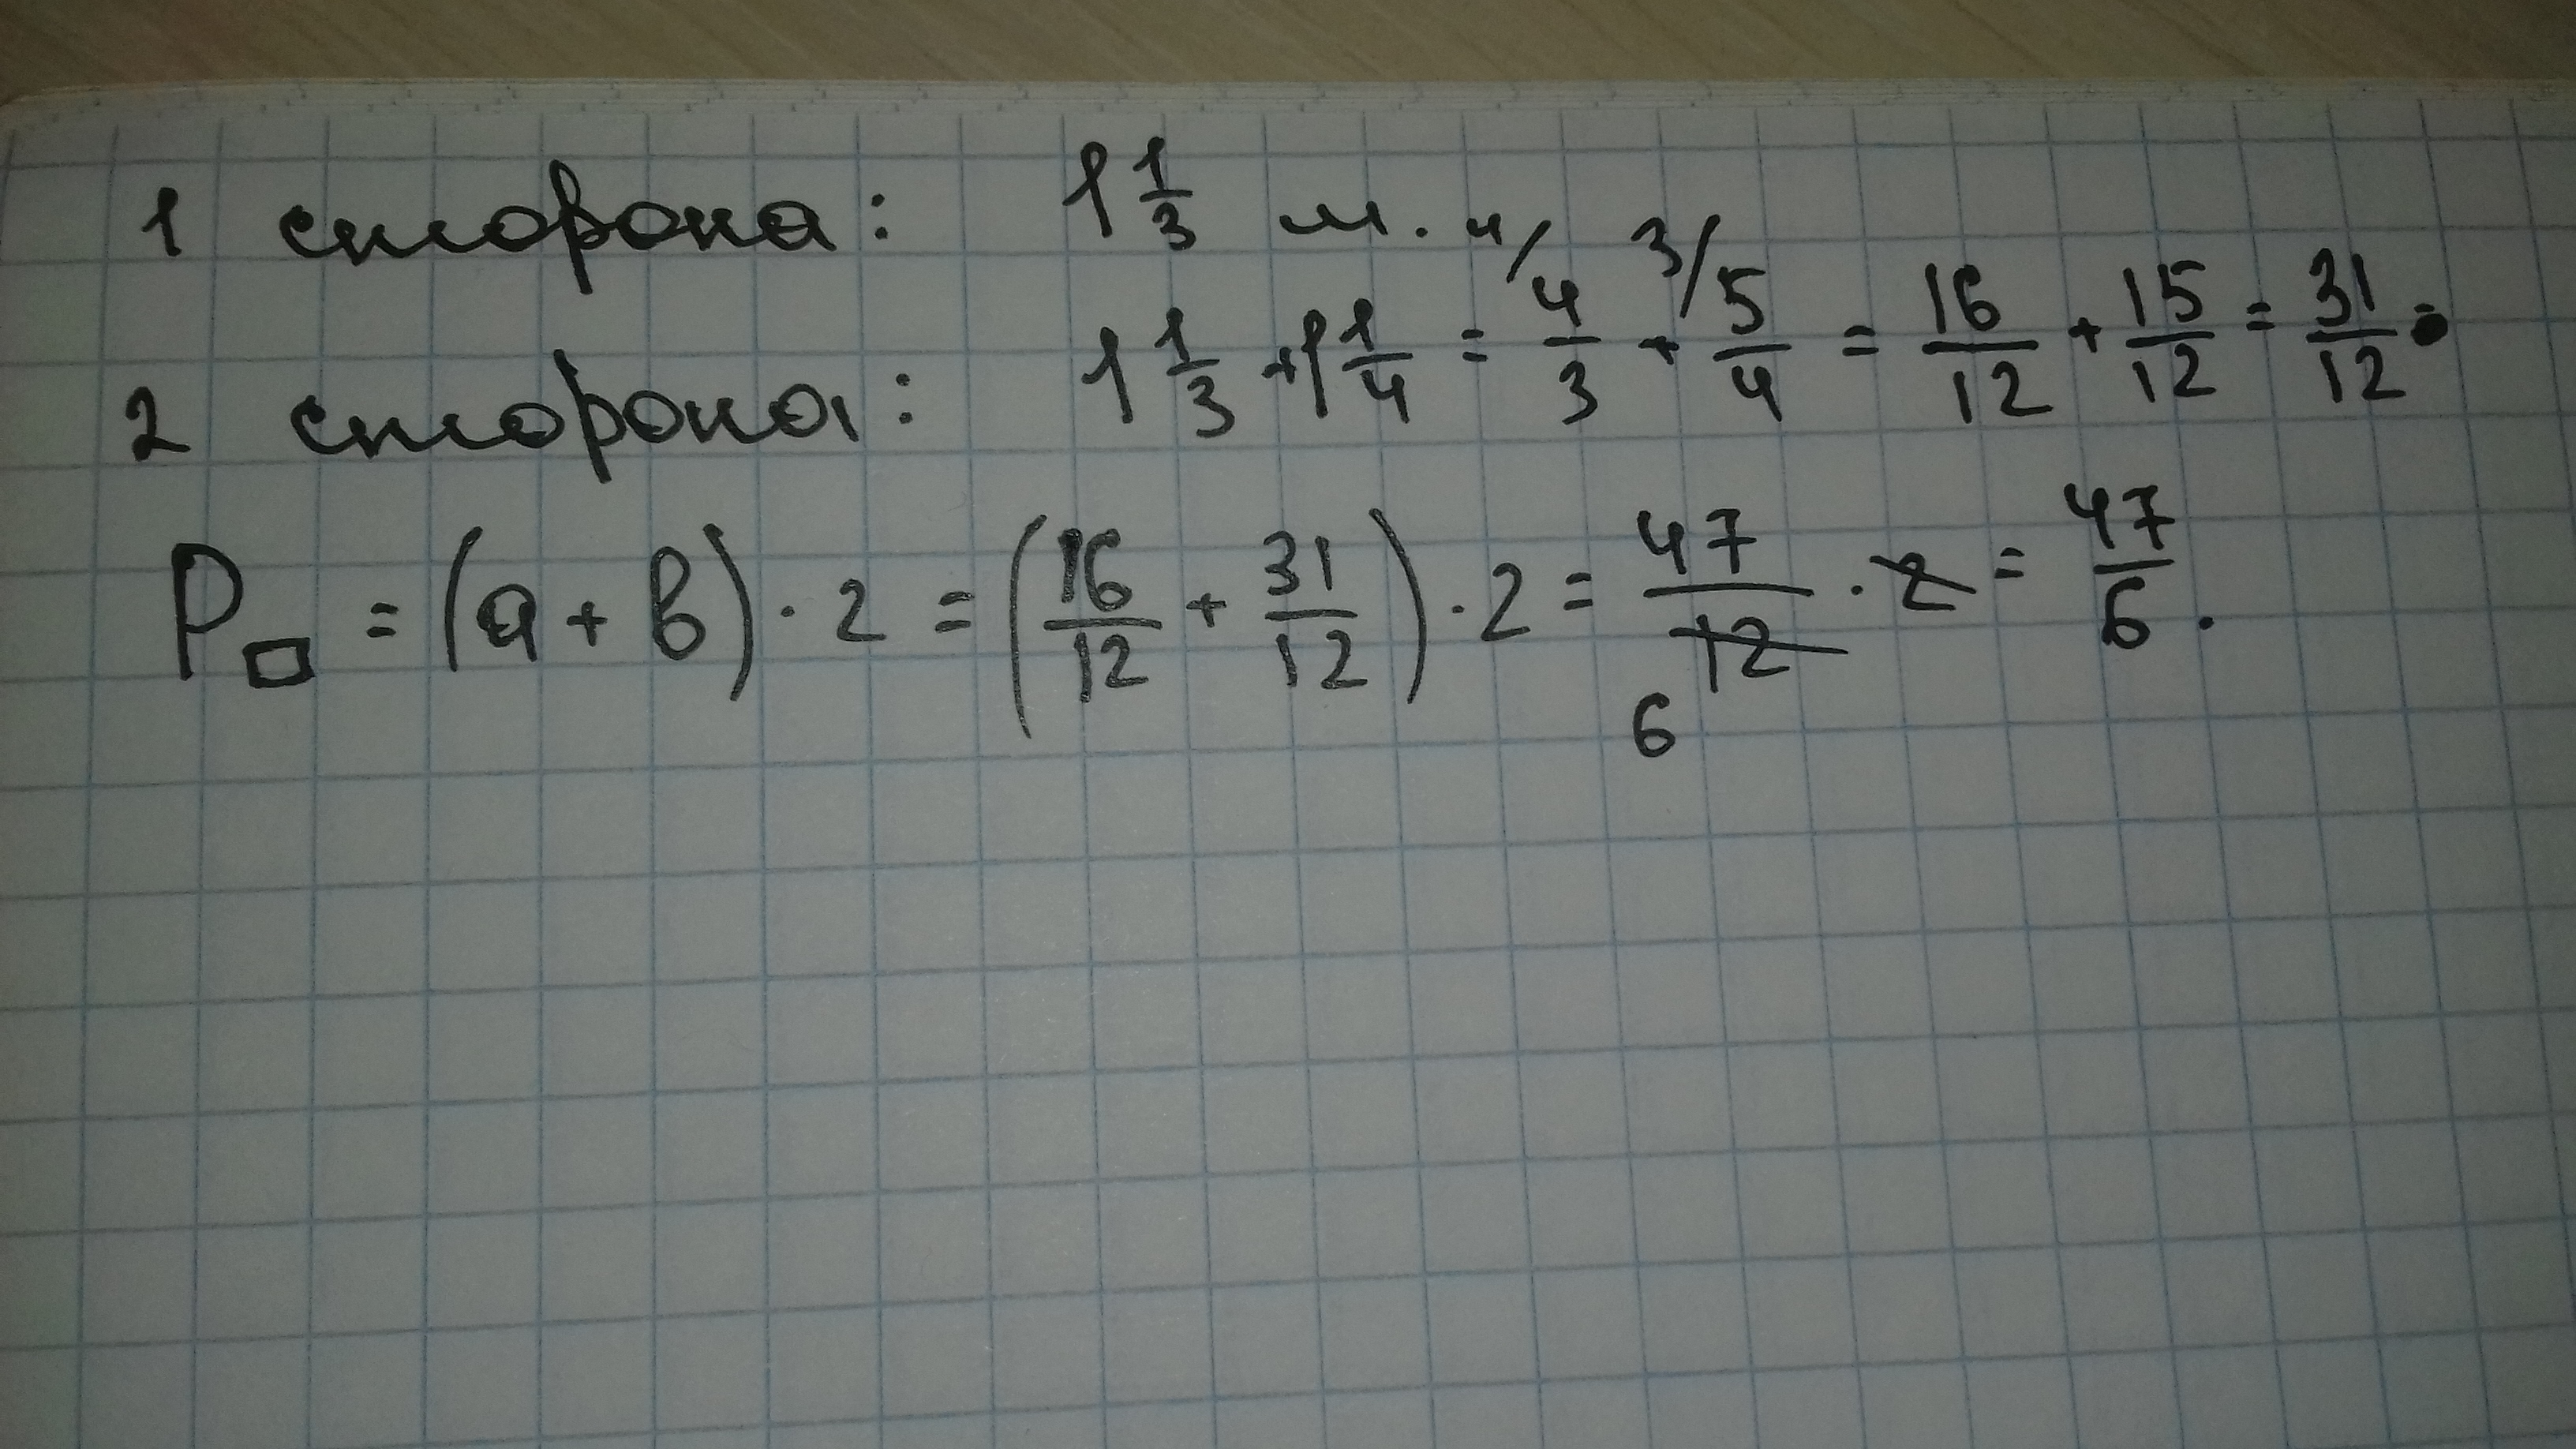 1 сторона: 1 1/3 м.
2 сторона: 1 1/3 + 1 1/4 = 4/ 4/3 + 3/ 5/4 = 16/12 + 15/12 = 31/12 =
P□ = (a + b) · 2 = (16/12 + 31/12) · 2 = 47/12 · 2 = 47/6.
6